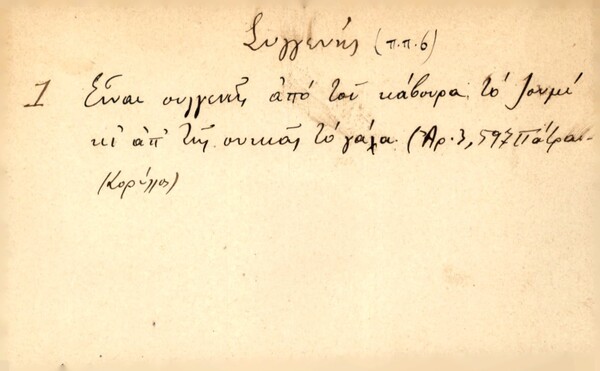 Συγγενής (π.π.6)
1 Εἶναι συγγενὴς ἀπό τοῦ κάβουρα τό ζουμί
κι' ἀπ' τῆς συκιᾶς τό γάλα. (Ἀρ. 3,597 Πάτραι-
(Κορύλλος)